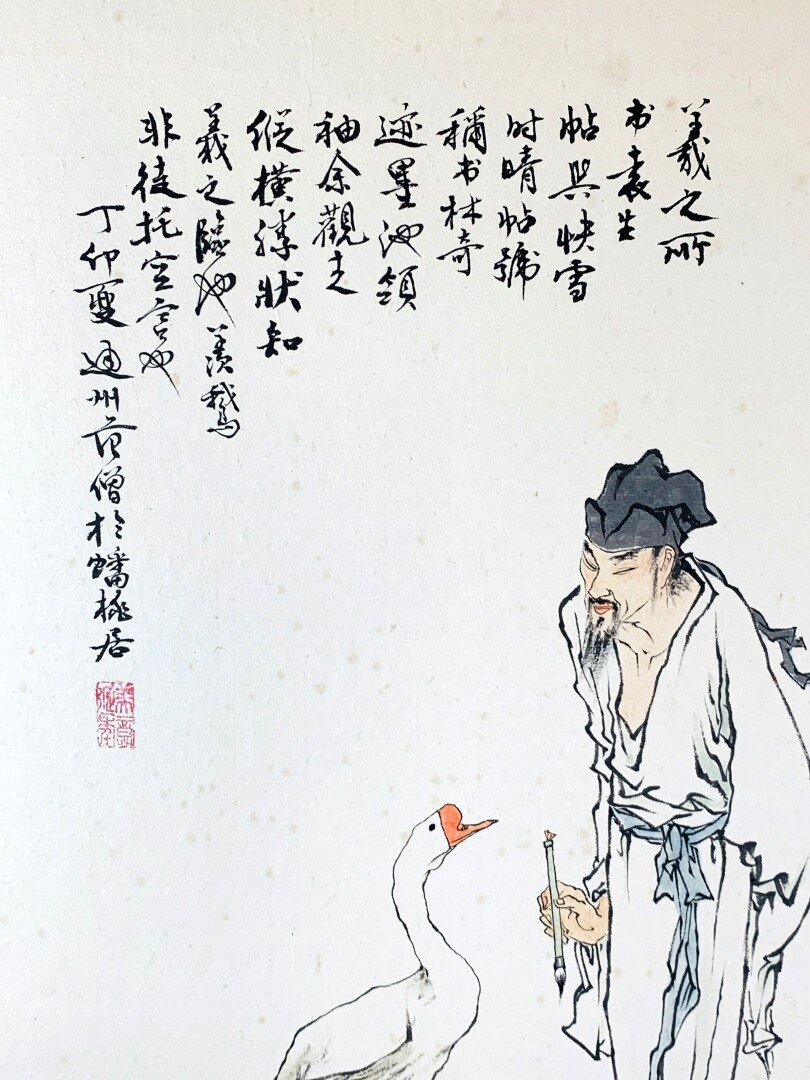 羲之所
书袁生
帖與快雪
时晴帖號
稱书林奇
迹墨池領
袖余觀之
纵横狀知
羲之臨池羡鵝
非徒托空言也
丁卯夏通州范僧於蟠桃居